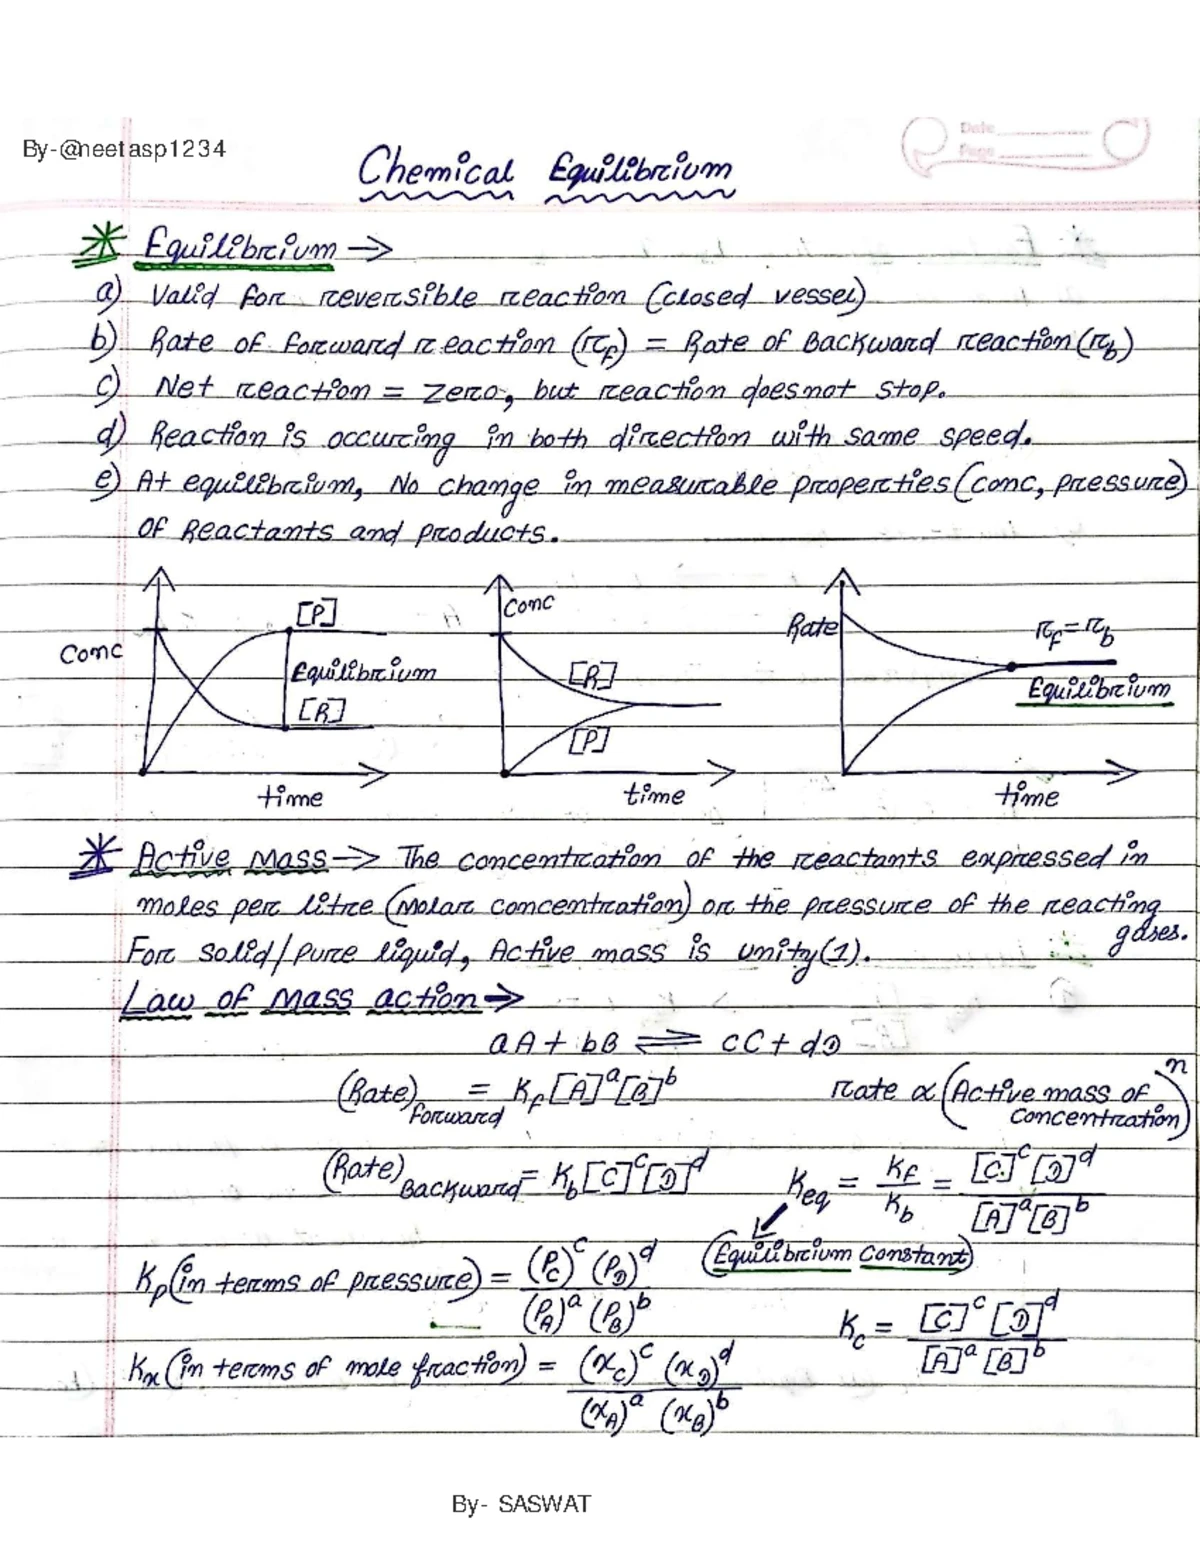 By-@neetasp1234
Date
Page
Chemical Equilibrium
* Equilibrium →
a) Valid for reversible reaction (closed vessel)
b) Rate of forward reaction (r_f) = Rate of Backward reaction (r_b)
c) Net reaction = Zero, but reaction doesnot stop.
d) Reaction is occuring in both direction with same speed.
e) At equilibrium, No change in measurable properties (conc, pressure)
of Reactants and products.
Conc
[P]
Equilibrium
[R]
time
Conc
[R]
[P]
time
Rate
r_f = r_b
Equilibrium
time
* Active Mass → The concentration of the reactants expressed in
moles per litre (Molar concentration) or the pressure of the reacting
gases.
For solid/pure liquid, Active mass is unity(1).
Law of Mass action →
aA + bB ⇌ cC + dD
(Rate)_forward = K_f [A]^a [B]^b
rate ∝ (Active mass of concentration)^n
(Rate)_Backward = K_b [C]^c [D]^d
K_eq = K_f / K_b = [C]^c [D]^d / [A]^a [B]^b
(Equilibrium Constant)
K_p (in terms of pressure) = (P_C)^c (P_D)^d / (P_A)^a (P_B)^b
K_c = [C]^c [D]^d / [A]^a [B]^b
K_x (in terms of mole fraction) = (x_C)^c (x_D)^d / (x_A)^a (x_B)^b
By- SASWAT